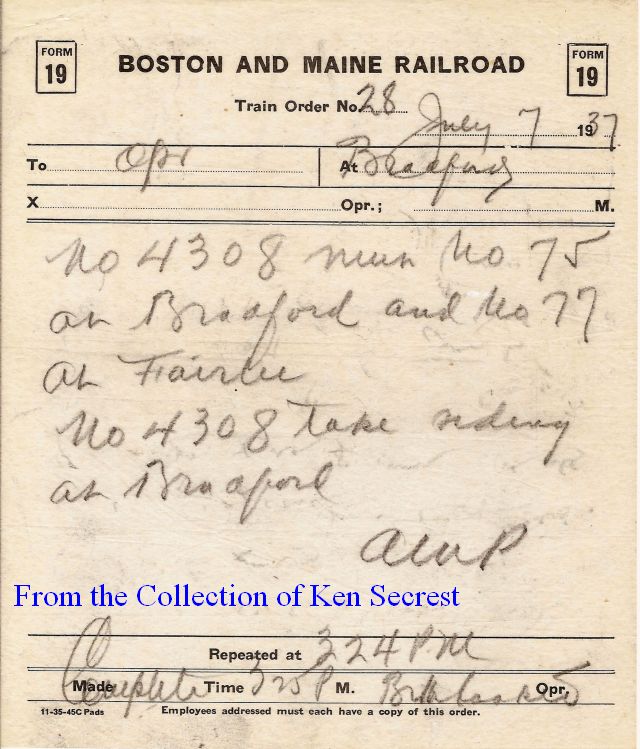 FORM 19
BOSTON AND MAINE RAILROAD
FORM 19
Train Order No. 28
July 7 1937
To Opr At Bradford
X Opr.; M.
No 4308 meet No 75
at Bradford and No 77
at Fairlee
No 4308 take siding
at Bradford
From the Collection of Ken Secrest
Repeated at 324 PM
Made Complete Time 325 P M. Opr.
11-35-45C Pads Employees addressed must each have a copy of this order.